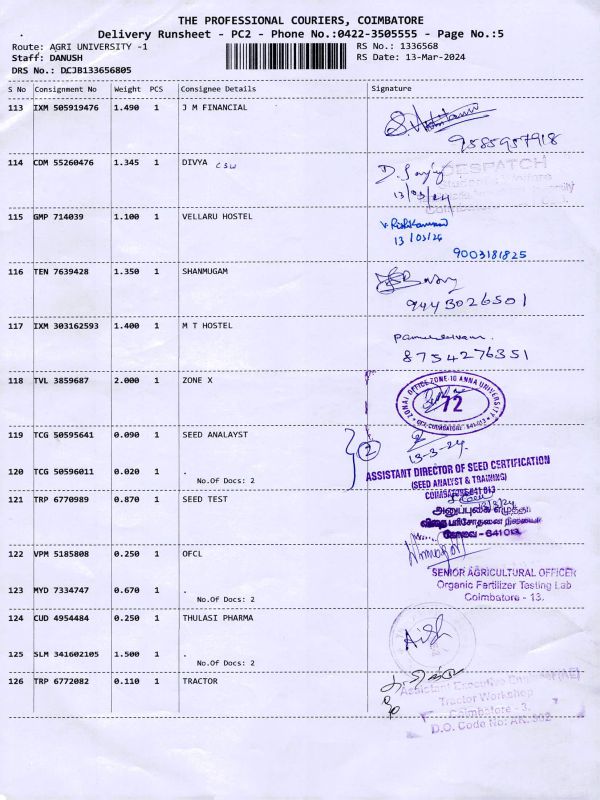 THE PROFESSIONAL COURIERS, COIMBATORE
Delivery Runsheet - PC2 - Phone No.:0422-3505555 - Page No.:5
Route: AGRI UNIVERSITY -1 RS No.: 1336568
Staff: DANUSH RS Date: 13-Mar-2024
DRS No.: DCJB133656805
S No Consignment No Weight PCS Consignee Details Signature
113 IXM 505919476 1.490 1 J M FINANCIAL
9585957918
114 CDM 55260476 1.345 1 DIVYA CSW
DESPATCH
13/03/24
115 GMP 714039 1.100 1 VELLARU HOSTEL
13/03/24
9003181825
116 TEN 7639428 1.350 1 SHANMUGAM
9443026501
117 IXM 303162593 1.400 1 M T HOSTEL
8754276351
118 TVL 3859687 2.000 1 ZONE X
ZONAL OFFICE ZONE-10 ANNA UNIVERSITY
72
COIMBATORE - 641 013
119 TCG 50595641 0.090 1 SEED ANALAYST
2
13-3-24
120 TCG 50596011 0.020 1 .
No.Of Docs: 2
ASSISTANT DIRECTOR OF SEED CERTIFICATION
(SEED ANALYST & TRAINING)
COIMBATORE-641 013
121 TRP 6770989 0.870 1 SEED TEST
விதை பரிசோதனை நிலையம்
கோவை - 641013
122 VPM 5185808 0.250 1 OFCL
SENIOR AGRICULTURAL OFFICER
Organic Fertilizer Testing Lab
Coimbatore - 13.
123 MYD 7334747 0.670 1 .
No.Of Docs: 2
124 CUD 4954484 0.250 1 THULASI PHARMA
125 SLM 341602105 1.500 1 .
No.Of Docs: 2
126 TRP 6772082 0.110 1 TRACTOR
Assistant Executive Engineer (AE)
Tractor Workshop
Coimbatore - 3.
D.O. Code No: AK. 302